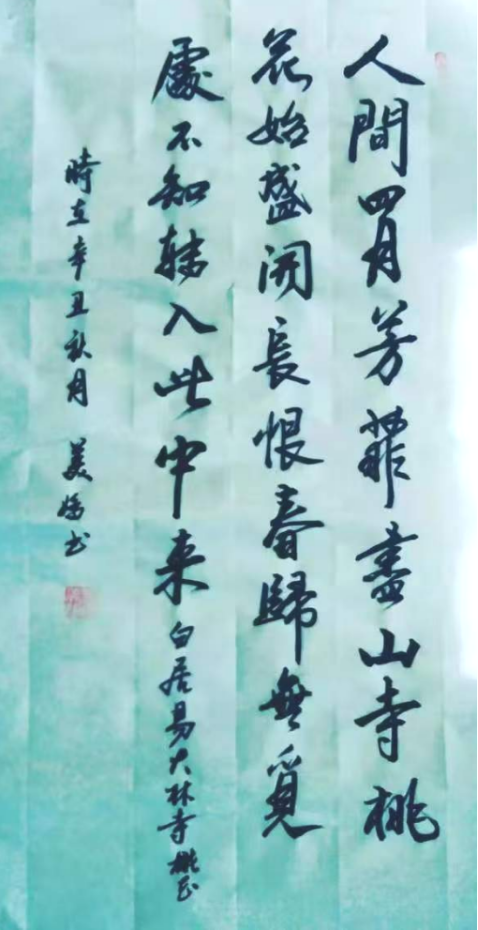 人間四月芳菲盡山寺桃
花始盛開長恨春歸無覓
處不知轉入此中来白居易大林寺桃花
時在辛丑秋月 美婷书